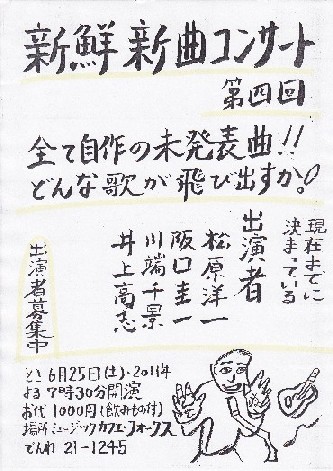 新鮮新曲コンサート
第四回
全て自作の未発表曲!!
どんな歌が飛び出すか。
現在までに
決まっている
出演者
松原洋一
阪口圭一
川端千景
井上高志
出演者募集中
とき 6月25日(土)・2011年
よる 7時30分開演
お代 1000円(飲みもの付)
場所 ミュージックカフェ・フォークス
でんわ 21-1245